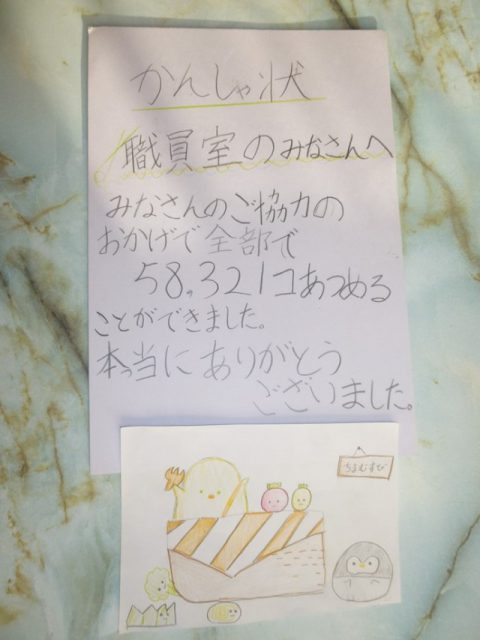 かんしゃ状
職員室のみなさんへ
みなさんのご協力の
おかげで全部で
58,321コあつめる
ことができました。
本当にありがとう
ございました。